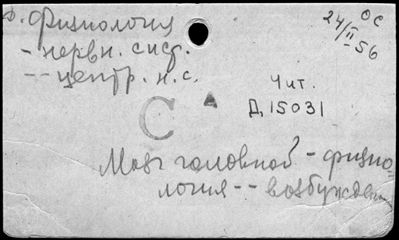 Физиология
ос
24/II-56
- нервн. сист.
-- центр. н.с.
Чит.
Д. 15031
С
Мозг головной - физио-
логия -- возбужден